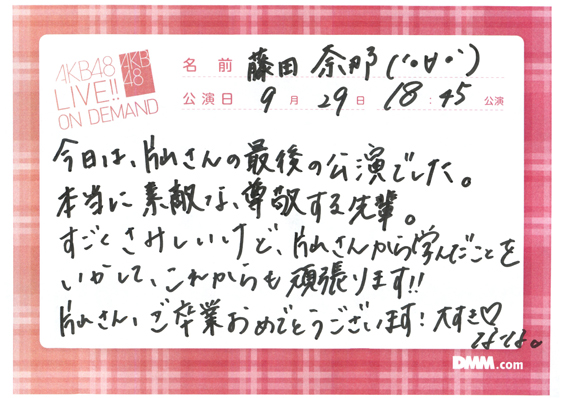 AKB48
LIVE!!
ON DEMAND
AKB
48
名前 藤田 奈那(°∀°)
公演日 9月29日 18:45公演
今日は、片山さんの最後の公演でした。
本当に素敵な、尊敬する先輩。
すごくさみしいけど、片山さんから学んだことを
いかして、これからも頑張ります!!
片山さん、ご卒業おめでとうございます!大すき♡
DMM.com